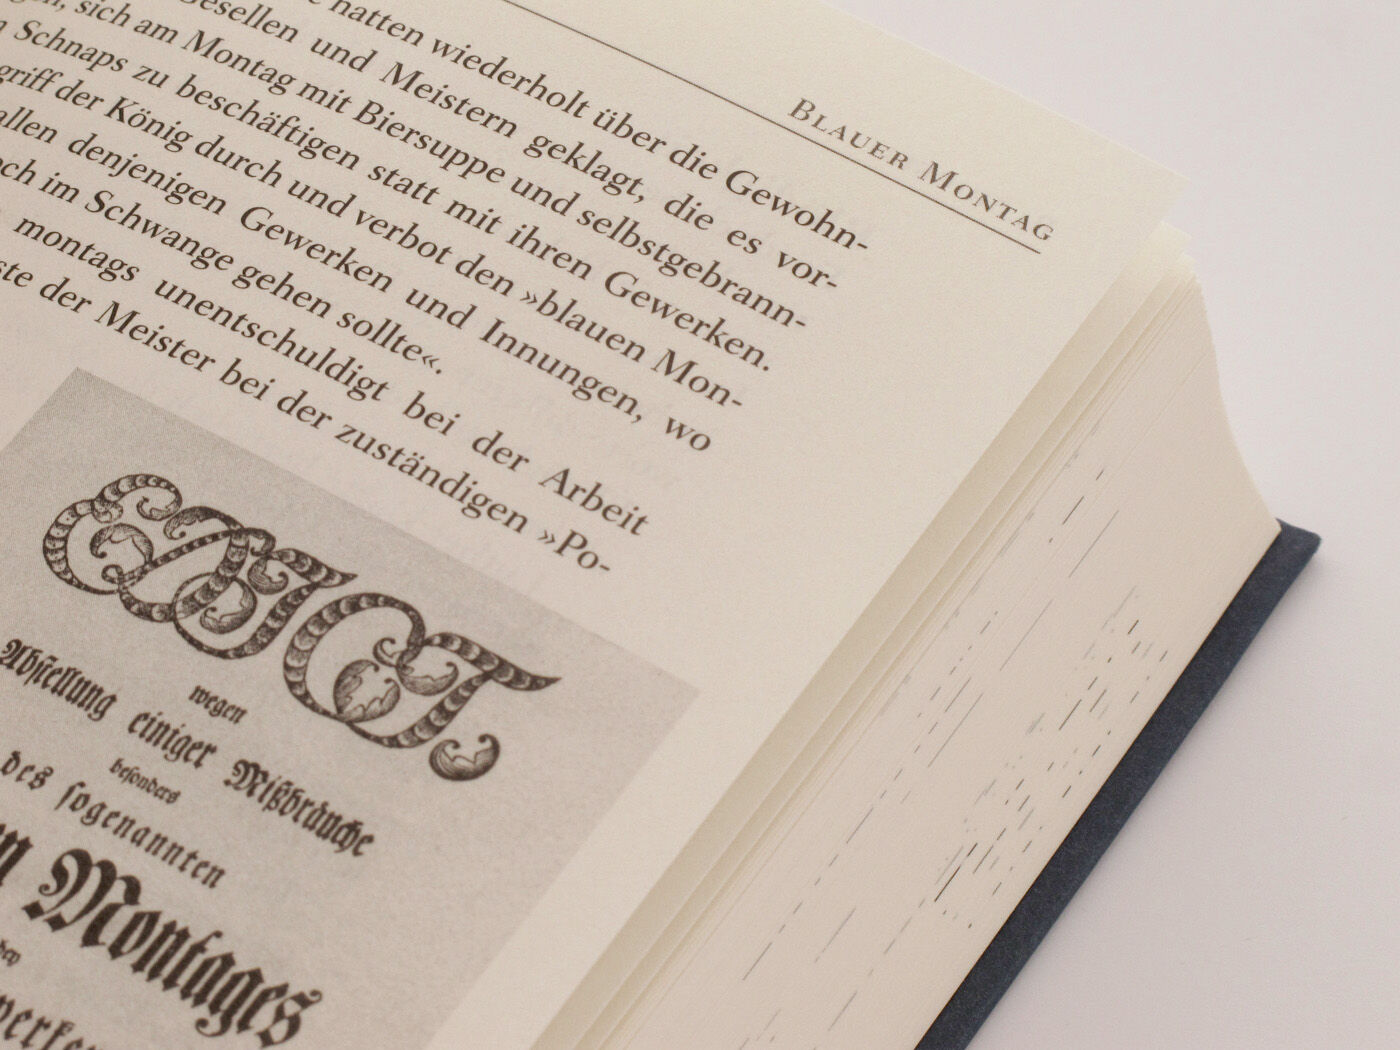 BLAUER MONTAG
hatten wiederholt über die Gewohn-
Gesellen und Meistern geklagt, die es vor-
sich am Montag mit Biersuppe und selbstgebrann-
Schnaps zu beschäftigen statt mit ihren Gewerken.
griff der König durch und verbot den »blauen Mon-
allen denjenigen Gewerken und Innungen, wo
och im Schwange gehen sollte«.
montags unentschuldigt bei der Arbeit
ste der Meister bei der zuständigen »Po-
EDICT.
wegen
Abſtellung einiger Mißbräuche
beſonders
des ſogenannten
Montages